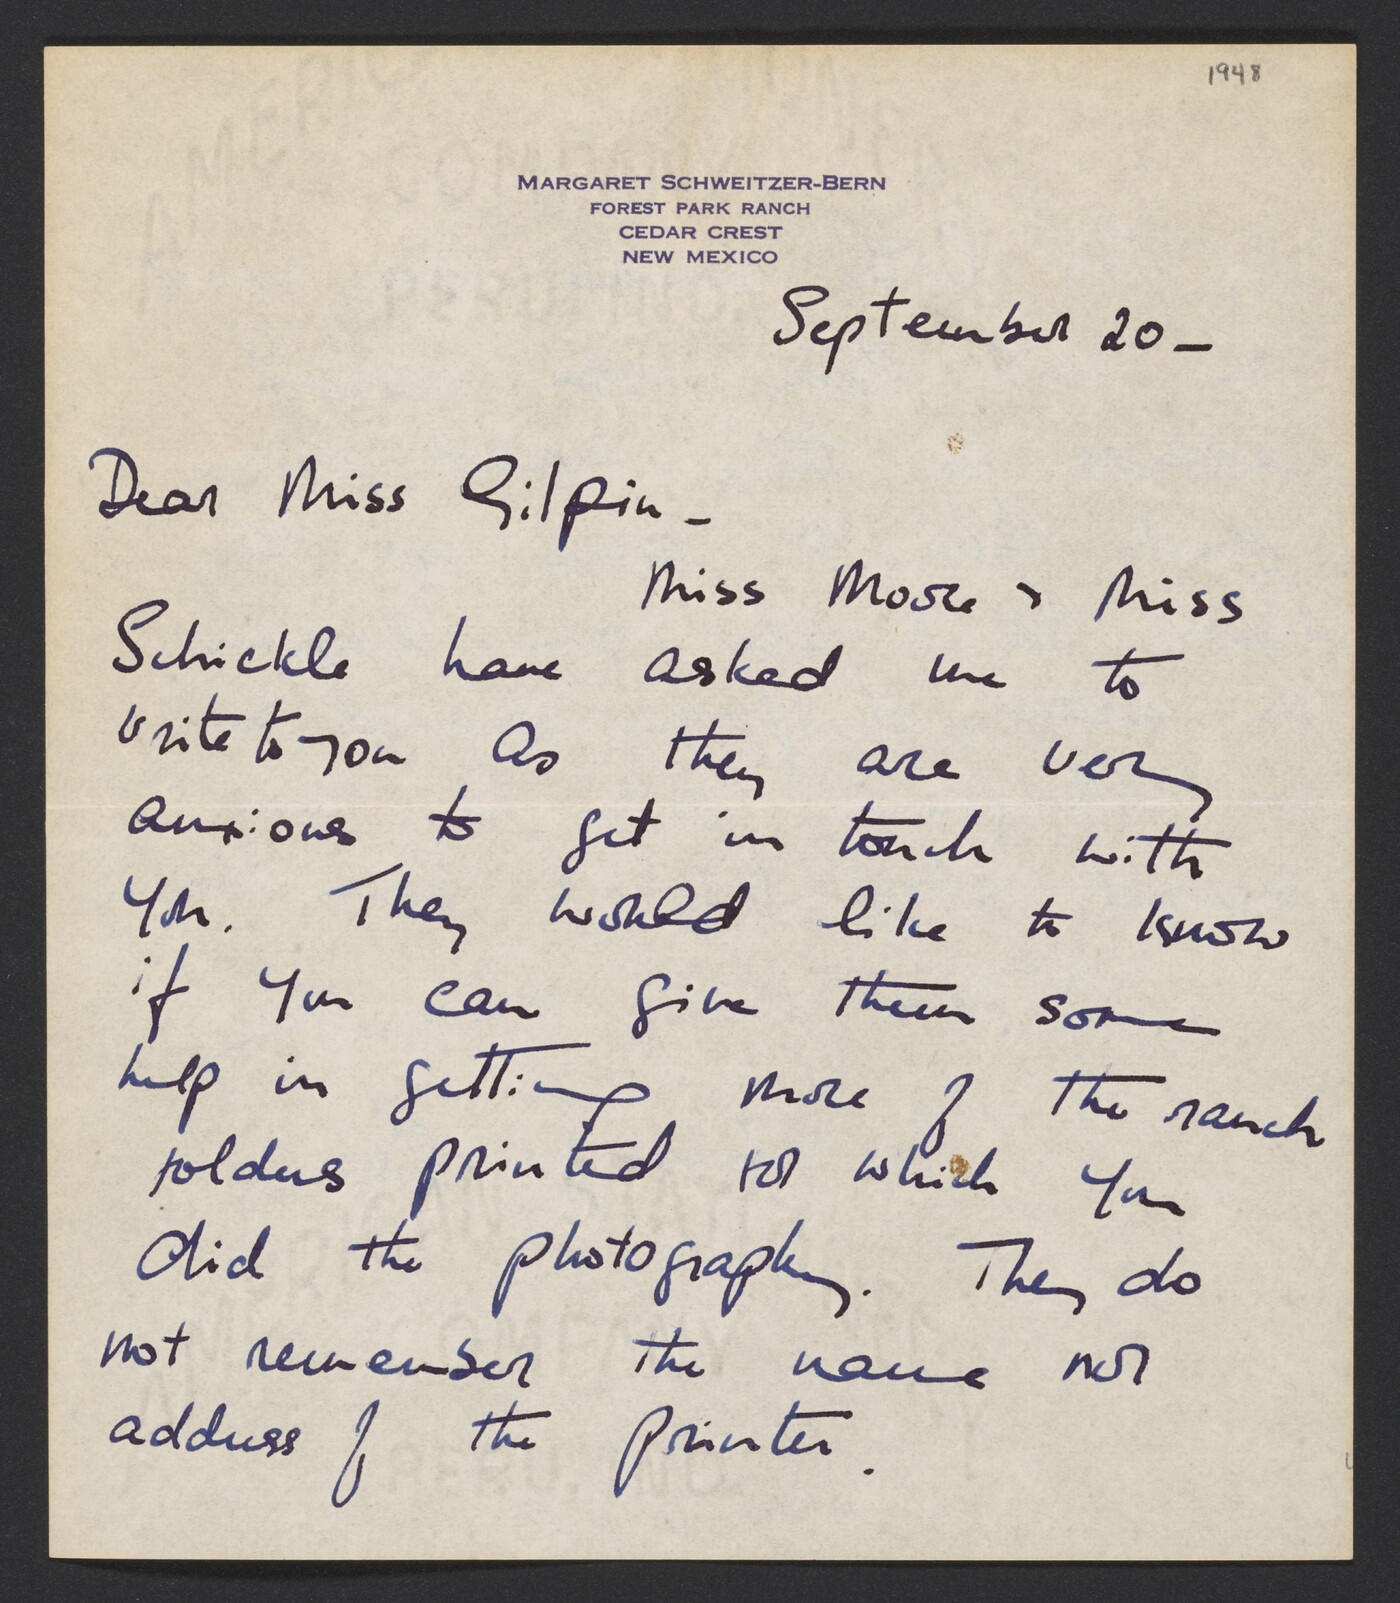 1948
MARGARET SCHWEITZER-BERN
FOREST PARK RANCH
CEDAR CREST
NEW MEXICO
September 20 —
Dear Miss Gilpin —
Miss Moore & Miss
Schickle have asked me to
write to you as they are very
anxious to get in touch with
you. They would like to know
if you can give them some
help in getting more of the ranch
folders printed for which you
did the photography. They do
not remember the name nor
address of the printer.